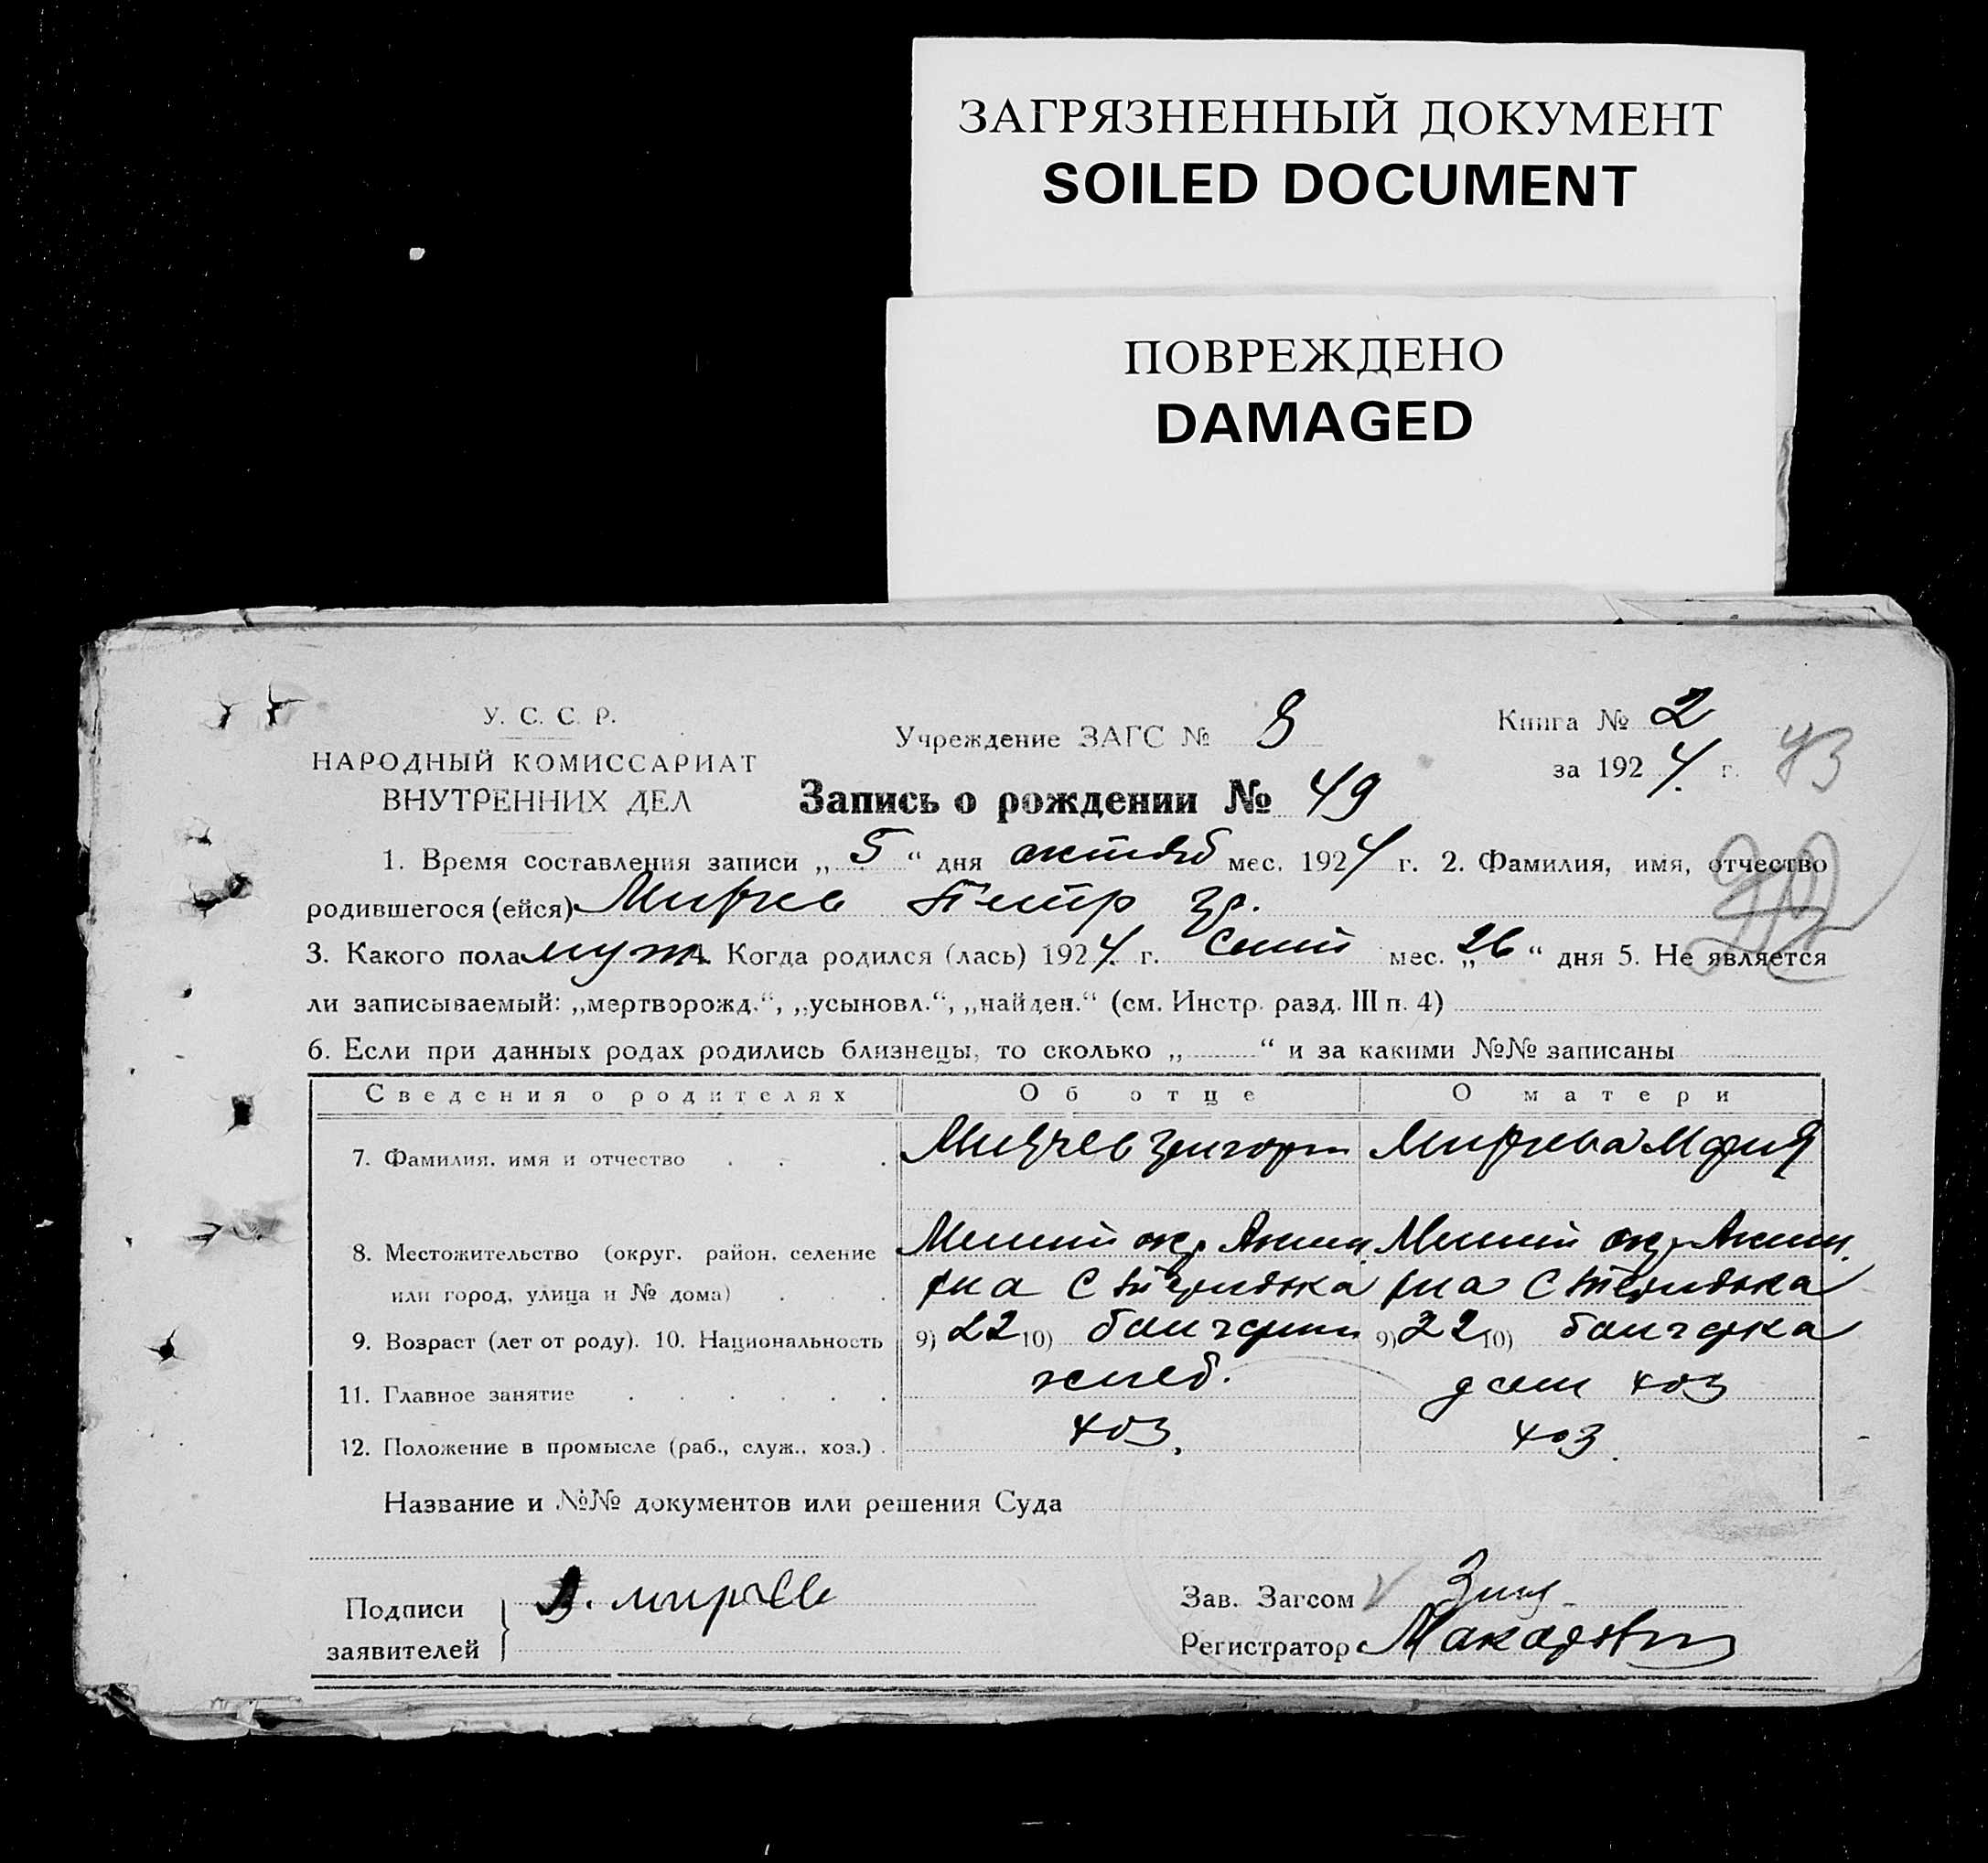 ЗАГРЯЗНЕННЫЙ ДОКУМЕНТ
SOILED DOCUMENT
ПОВРЕЖДЕНО
DAMAGED
У. С. С. Р.
НАРОДНЫЙ КОМИССАРИАТ
ВНУТРЕННИХ ДЕЛ
Учреждение ЗАГС № 8
Книга № 2
за 1924 г.
Запись о рождении № 49
1. Время составления записи „ 5 “ дня октяб мес. 1924 г. 2. Фамилия, имя, отчество
родившегося (ейся) Мирчев Петр Гр.
3. Какого пола муж 4. Когда родился (лась) 1924 г. Сент мес. „ 26 “ дня 5. Не является
ли записываемый: „мертворожд.“, „усыновл.“, „найден.“ (см. Инстр. разд. III п. 4)
6. Если при данных родах родились близнецы, то сколько „ “ и за какими №№ записаны
Сведения о родителях Об отце О матери
7. Фамилия, имя и отчество Мирчев Григори Мирчева Мария
8. Местожительство (округ, район, селение Мелит окр Аким Мелит окр Аким
или город, улица и № дома) рна С рна С
9. Возраст (лет от роду). 10. Национальность 9) 22 10) болгарин 9) 22 10) болгарка
11. Главное занятие хлеб. дом хоз
12. Положение в промысле (раб., служ., хоз.) хоз. хоз.
Название и №№ документов или решения Суда
Подписи
заявителей
мирчев
Зав. Загсом
Регистратор